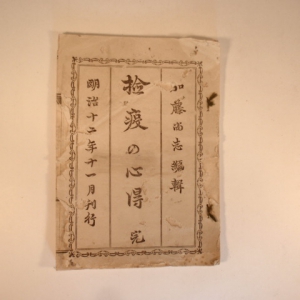 加藤尚志編輯
撿疫の心得 完
明治十二年十一月刊行